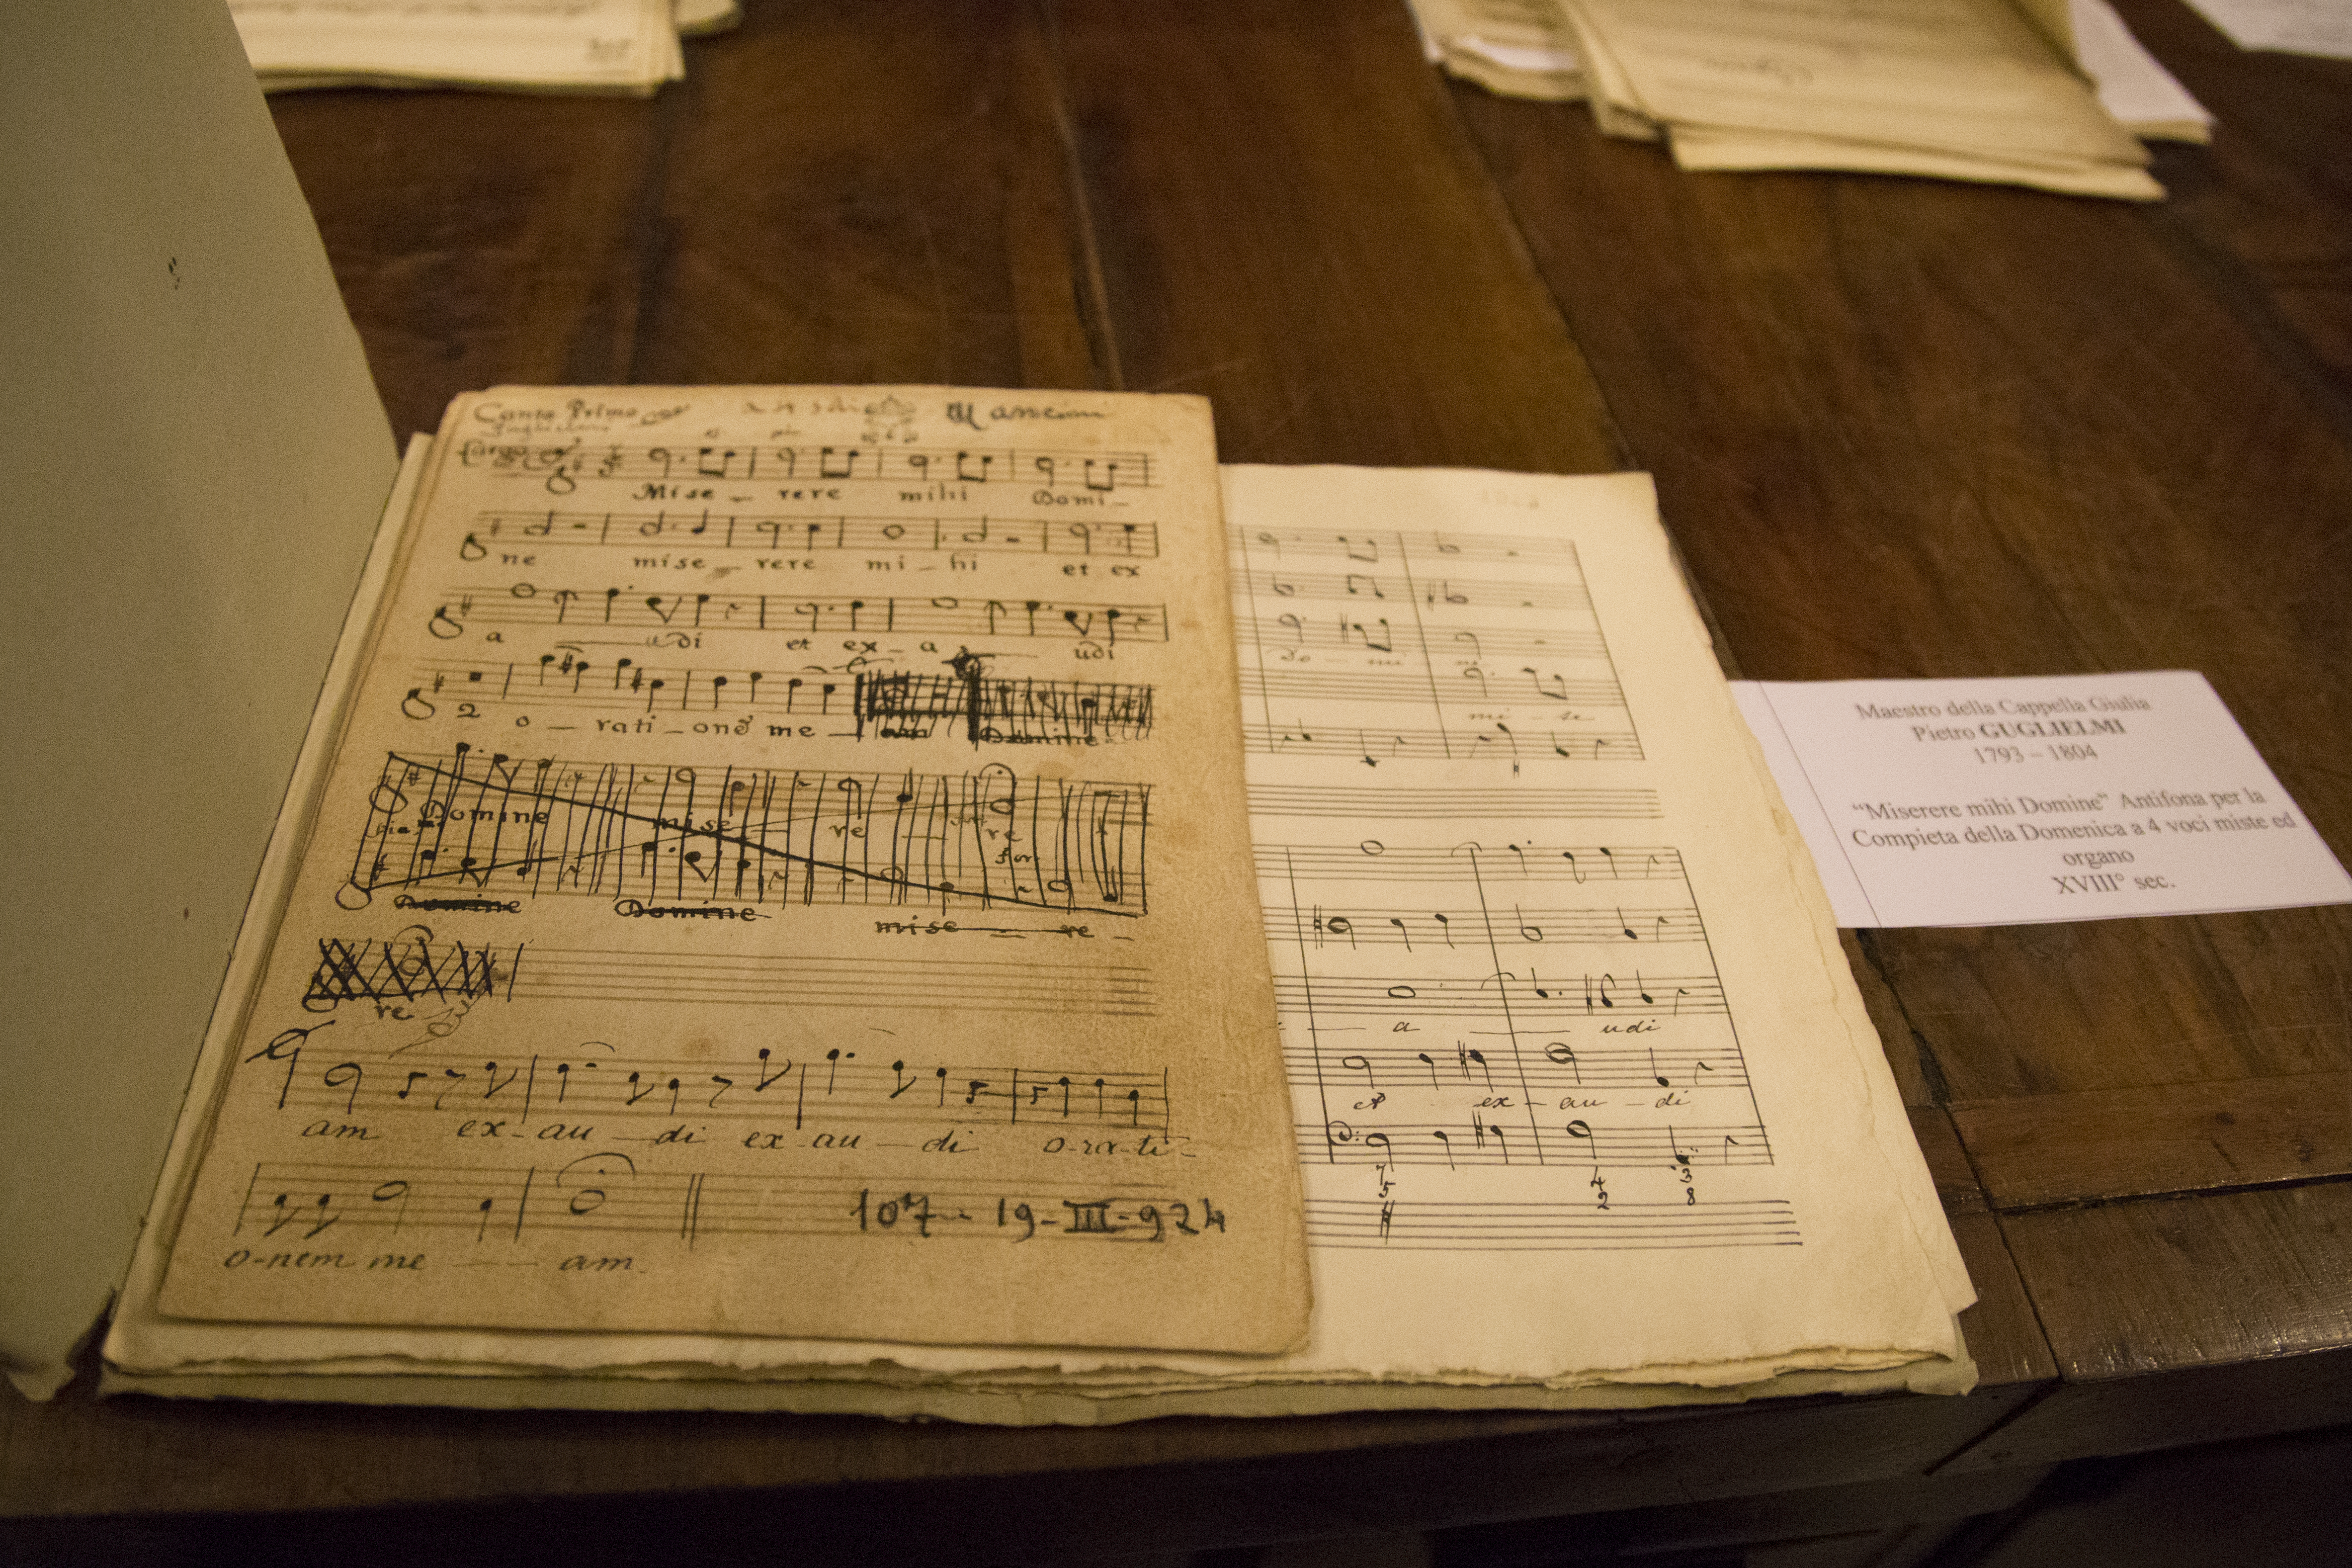 Canto Primo Mancini
Guglielmi
Largo
Mise - rere mihi Domi -
ne mise - rere mi - hi et ex
a udi et ex - a udi
2 o - rati - onẽ me - am Domine
Domine mise re re
Domine Domine mise - re -
re
am ex - au - di ex - au - di o-ra-ti-
o-nem me - - am.
107 - 19-III-924
Do mi ne
mi - se
a udi
et ex - au - di
7 4 3
5 2 8
Maestro della Cappella Giulia
Pietro GUGLIELMI
1793 – 1804
“Miserere mihi Domine” Antifona per la
Compieta della Domenica a 4 voci miste ed
organo
XVIII° sec.